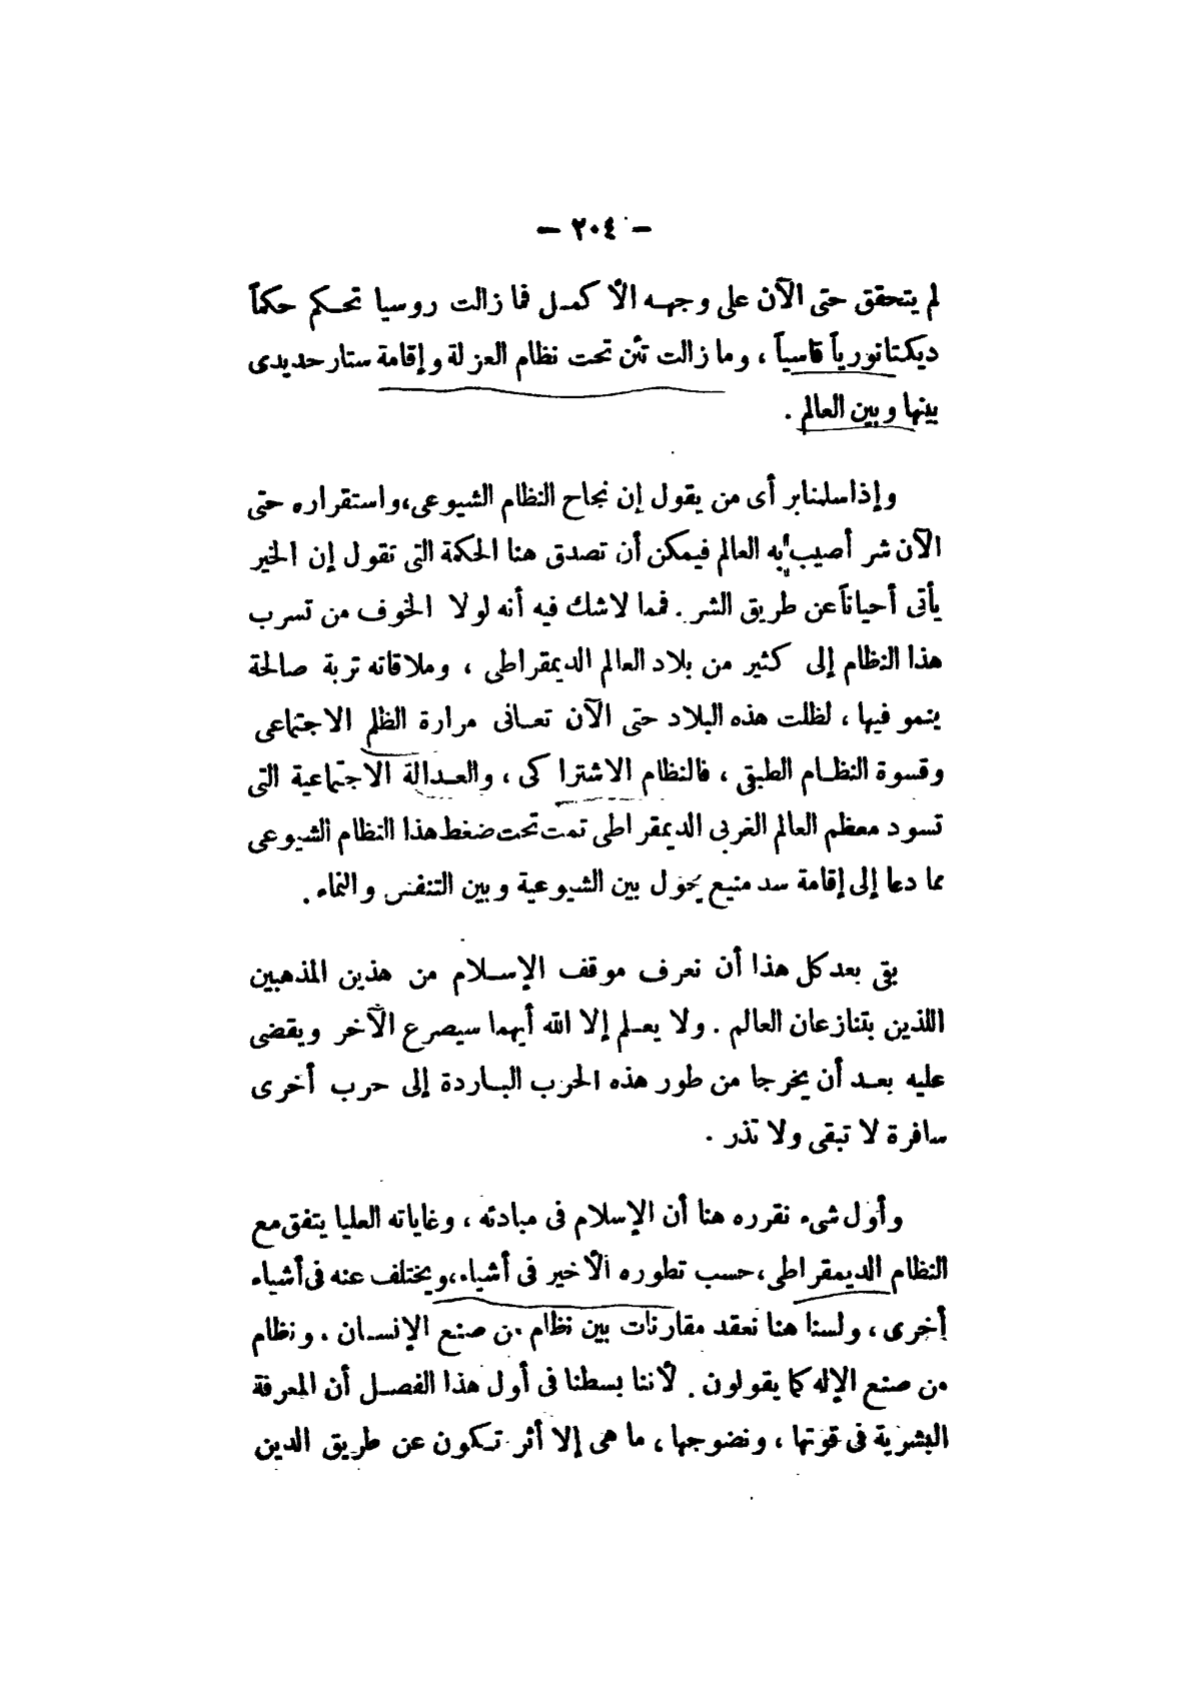 — ٢٠٤ —
لم يتحقق حتى الآن على وجهه الأكمل فما زالت روسيا تحكم حكماً
ديكتاتورياً قاسياً ، وما زالت تئن تحت نظام العزلة وإقامة ستار حديدى
بينها وبين العالم .
وإذا سلمنا برأى من يقول إن نجاح النظام الشيوعى، واستقراره حتى
الآن شر أصيب به العالم فيمكن أن تصدق هنا الحكمة التى تقول إن الخير
يأتى أحياناً عن طريق الشر . فمما لاشك فيه أنه لولا الخوف من تسرب
هذا النظام إلى كثير من بلاد العالم الديمقراطى ، وملاقاته تربة صالحة
ينمو فيها ، لظلت هذه البلاد حتى الآن تعانى مرارة الظلم الاجتماعى
وقسوة النظام الطبقى ، فالنظام الاشتراكى ، والعدالة الاجتماعية التى
تسود معظم العالم الغربى الديمقراطى تمت تحت ضغط هذا النظام الشيوعى
مما دعا إلى إقامة سد منيع يحول بين الشيوعية وبين التنفس والنماء .
بقى بعد كل هذا أن نعرف موقف الإسلام من هذين المذهبين
اللذين يتنازعان العالم . ولا يعلم إلا الله أيهما سيصرع الآخر ويقضى
عليه بعد أن يخرجا من طور هذه الحرب الباردة إلى حرب أخرى
سافرة لا تبقى ولا تذر .
وأول شىء نقرره هنا أن الإسلام فى مبادئه ، وغاياته العليا يتفق مع
النظام الديمقراطى، حسب تطوره الأخير فى أشياء، ويختلف عنه فى أشياء
أخرى ، ولسنا هنا نعقد مقارنات بين نظام من صنع الإنسان . ونظام
من صنع الإله كما يقولون . لأننا بسطنا فى أول هذا الفصل أن المعرفة
البشرية فى قوتها ، ونضوجها ، ما هى إلا أثر تكون عن طريق الدين